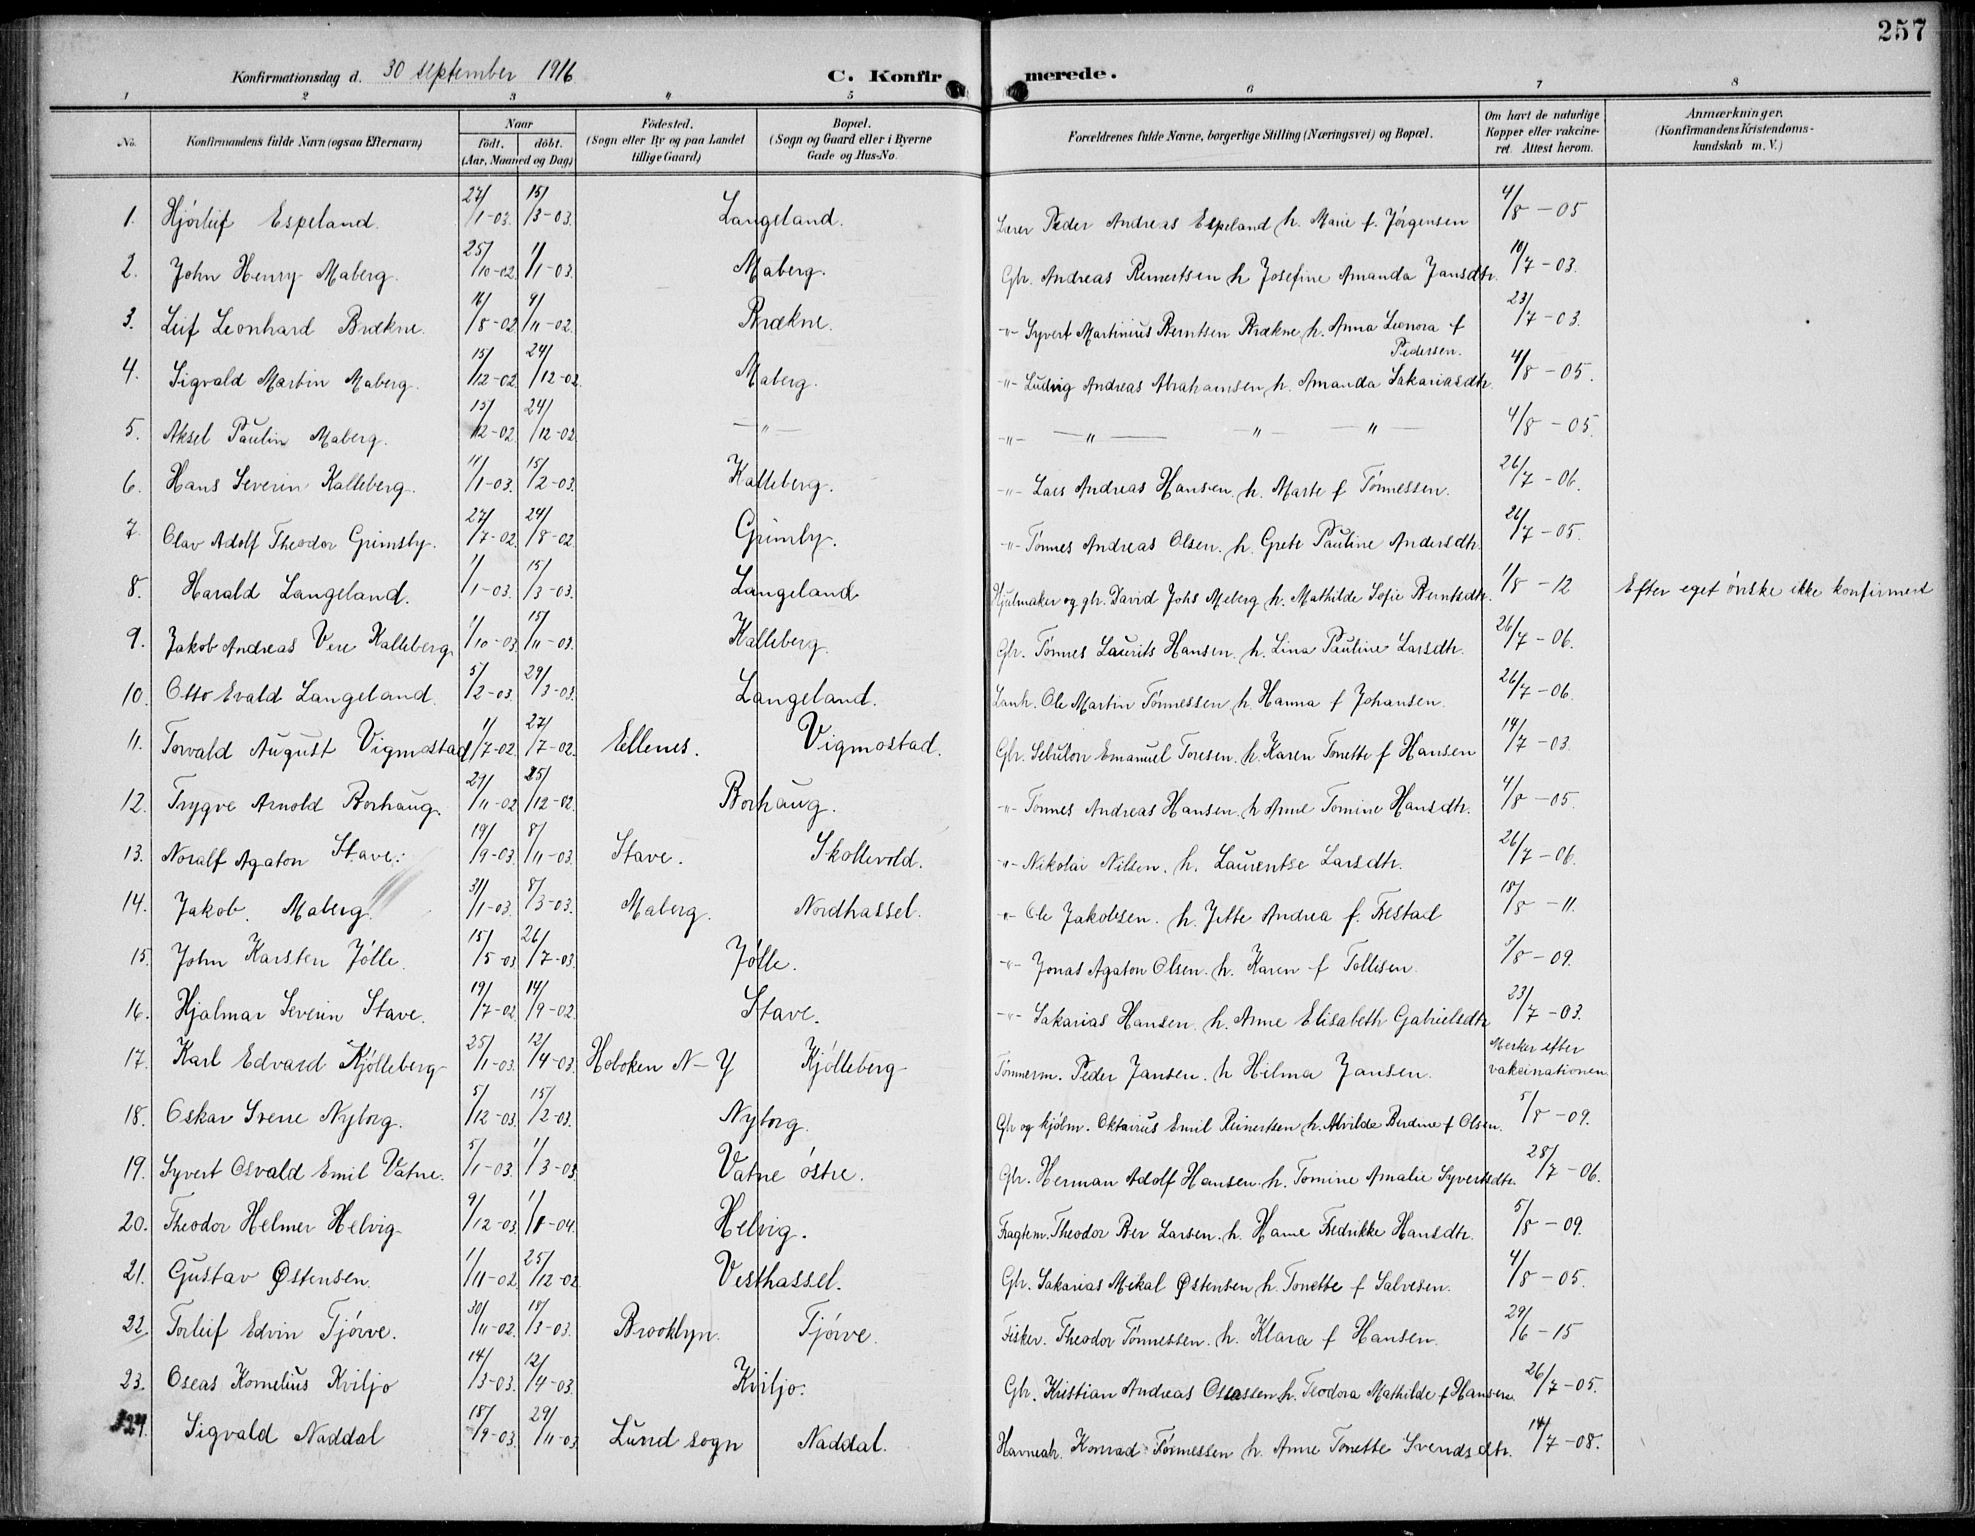 257
Konfirmationsdag d. 30 september 1916
C. Konfirmerede.
1 2 3 4 5 6 7 8
No. Konfirmandens fulde Navn (ogsaa Efternavn) Naar födt. döbt. (Aar, Maaned og Dag) Födested. (Sogn eller By og paa Landet tillige Gaard) Bopæl. (Sogn og Gaard eller i Byerne Gade og Hus-No. Forældrenes fulde Navne, borgerlige Stilling (Næringsvei) og Bopæl. Om havt de naturlige Kopper eller vakcineret. Attest herom. Anmærkninger. (Konfirmandens Kristendomskundskab m. V.)
1. Hjörleif Espeland. 27/1-03. 15/3-03. Langeland. Lærer Peder Andreas Espeland h. Marie f. Jörgensen 4/8-05
2. John Henry Maberg. 25/10-02 1/1-03. Maberg. Gbr. Andreas Reinertsen h Josefine Amanda Jansdtr. 10/7-03.
3. Leif Leonhard Brækne. 16/8-02 9/11-02. Brækne. -"- Syvert Martinius Berntsen Brækne h. Anna Leonora f Pedersen. 23/7-03.
4. Sigvald Martin Maberg. 15/12-02 24/12-02. Maberg. -"- Ludvig Andreas Abrahamsen h. Amanda Sakariasdtr. 4/8-05.
5. Aksel Paulin Maberg. 15/12-02. 24/12-02 -"- -"- -"- -"- -"- 4/8-05.
6. Hans Severin Kalleberg. 11/1-03. 15/2-03. Kalleberg. -"- Lars Andreas Hansen. h. Marte f Tönnessen. 26/7-06.
7. Olav Adolf Theodor Grimsby. 27/7-02. 24/8-02 Grimby. -"- Tönnes Andreas Olsen. h. Grete Pauline Andersdtr. 26/7-05.
8. Harald Langeland. 1/1-03. 15/3-03. Langeland Hjulmaker og gbr. David Johs Meberg h. Mathilde Sofie Berntsdtr. 1/8-12 Efter eget önske ikke konfirmert
9. Jakob Andreas Vere Kalleberg 1/10-03 15/11-03. Kalleberg. Gbr. Tönnes Laurits Hansen. h. Lina Pauline Larsdtr. 26/7-06.
10. Otto Evald Langeland. 5/2-03. 29/3-03. Langeland. Ole Martin Tönnessen h. Hanna f Johansen. 26/7-06.
11. Torvald August Vigmostad 1/7-02. 27/7-02. Ellenes. Vigmostad. Gbr. Sebulon Emanuel Toresen. h. Karen Tonette f Hansen 14/7-03.
12. Trygve Arnold Borhaug. 29/11-02 25/12-02. Borhaug. -"- Tönnes Andreas Hansen. h Anne Tomine Hansdtr. 4/8-05.
13. Noralf Agaton Stave. 19/9-03 8/11-03. Stave. Skollevold. -"- Nikolai Nilsen. h. Laurentse Larsdtr. 26/7-06.
14. Jakob. Maberg. 31/1-03. 8/3-03. Maberg. Nordhassel. -"- Ole Jakobsen. h. Jette Andrea f. Bestad 18/8-11.
15. John Karsten Jölle. 15/5-03 26/7-03. Jölle. -"- Jonas Agaton Olsen. h. Karen f Tollisen. 3/8-09.
16. Hjalmar Severin Stave. 19/7-02 14/9-02. Stave. -"- Sakarias Hansen. h. Anne Elisabeth Gabrielsdtr 23/7-03.
17. Karl Edvard Kjölleberg 25/1-03. 12/4-03. Hoboken N-Y Kjölleberg Tömmerm. Peder Jansen. h Hilma Jansen. Merker efter vakcinationen
18. Oskar Sverre Nyborg. 5/12-03 15/2-03. Nyborg. Gbr og kjölm. Oktavius Emil Reinertsen h. Alvilde Berdine f Olsen. 5/8-09.
19. Syvert Osvald Emil Vatne. 5/1-03. 1/3-03. Vatne östre. Gbr. Herman Adolf Hansen. h. Tomine Amalie Syvertsdtr. 28/7-06.
20. Theodor Helmer Helvig 9/12-03 1/1-04. Helvig. Fragtem. Theodor Ber Larsen. h. Hanne Fredrikke Hansdtr. 5/8-09.
21. Gustav Østensen. 1/11-02 25/12-02 Vesthassel. Gbr. Sakarias Mekal Østensen h. Tonette f Salvesen. 4/8-05.
22. Torleif Edvin Tjörve. 30/11-02. 18/3-03. Brooklyn. Tjörve. Fisker. Theodor Tönnessen. h. Klara f Hansen. 29/6-15
23. Oseas Kornelius Kviljo 14/3-03. 12/4-03. Kviljo. Gbr. Kristian Andreas Oseassen h. Teodora Mathilde f Hansen. 26/7-05.
24. Sigvald Naddal 18/9-03. 29/11-03 Lund sogn Naddal. Konrad Tönnessen h. Anne Tonette Svendsdtr. 14/7-08.